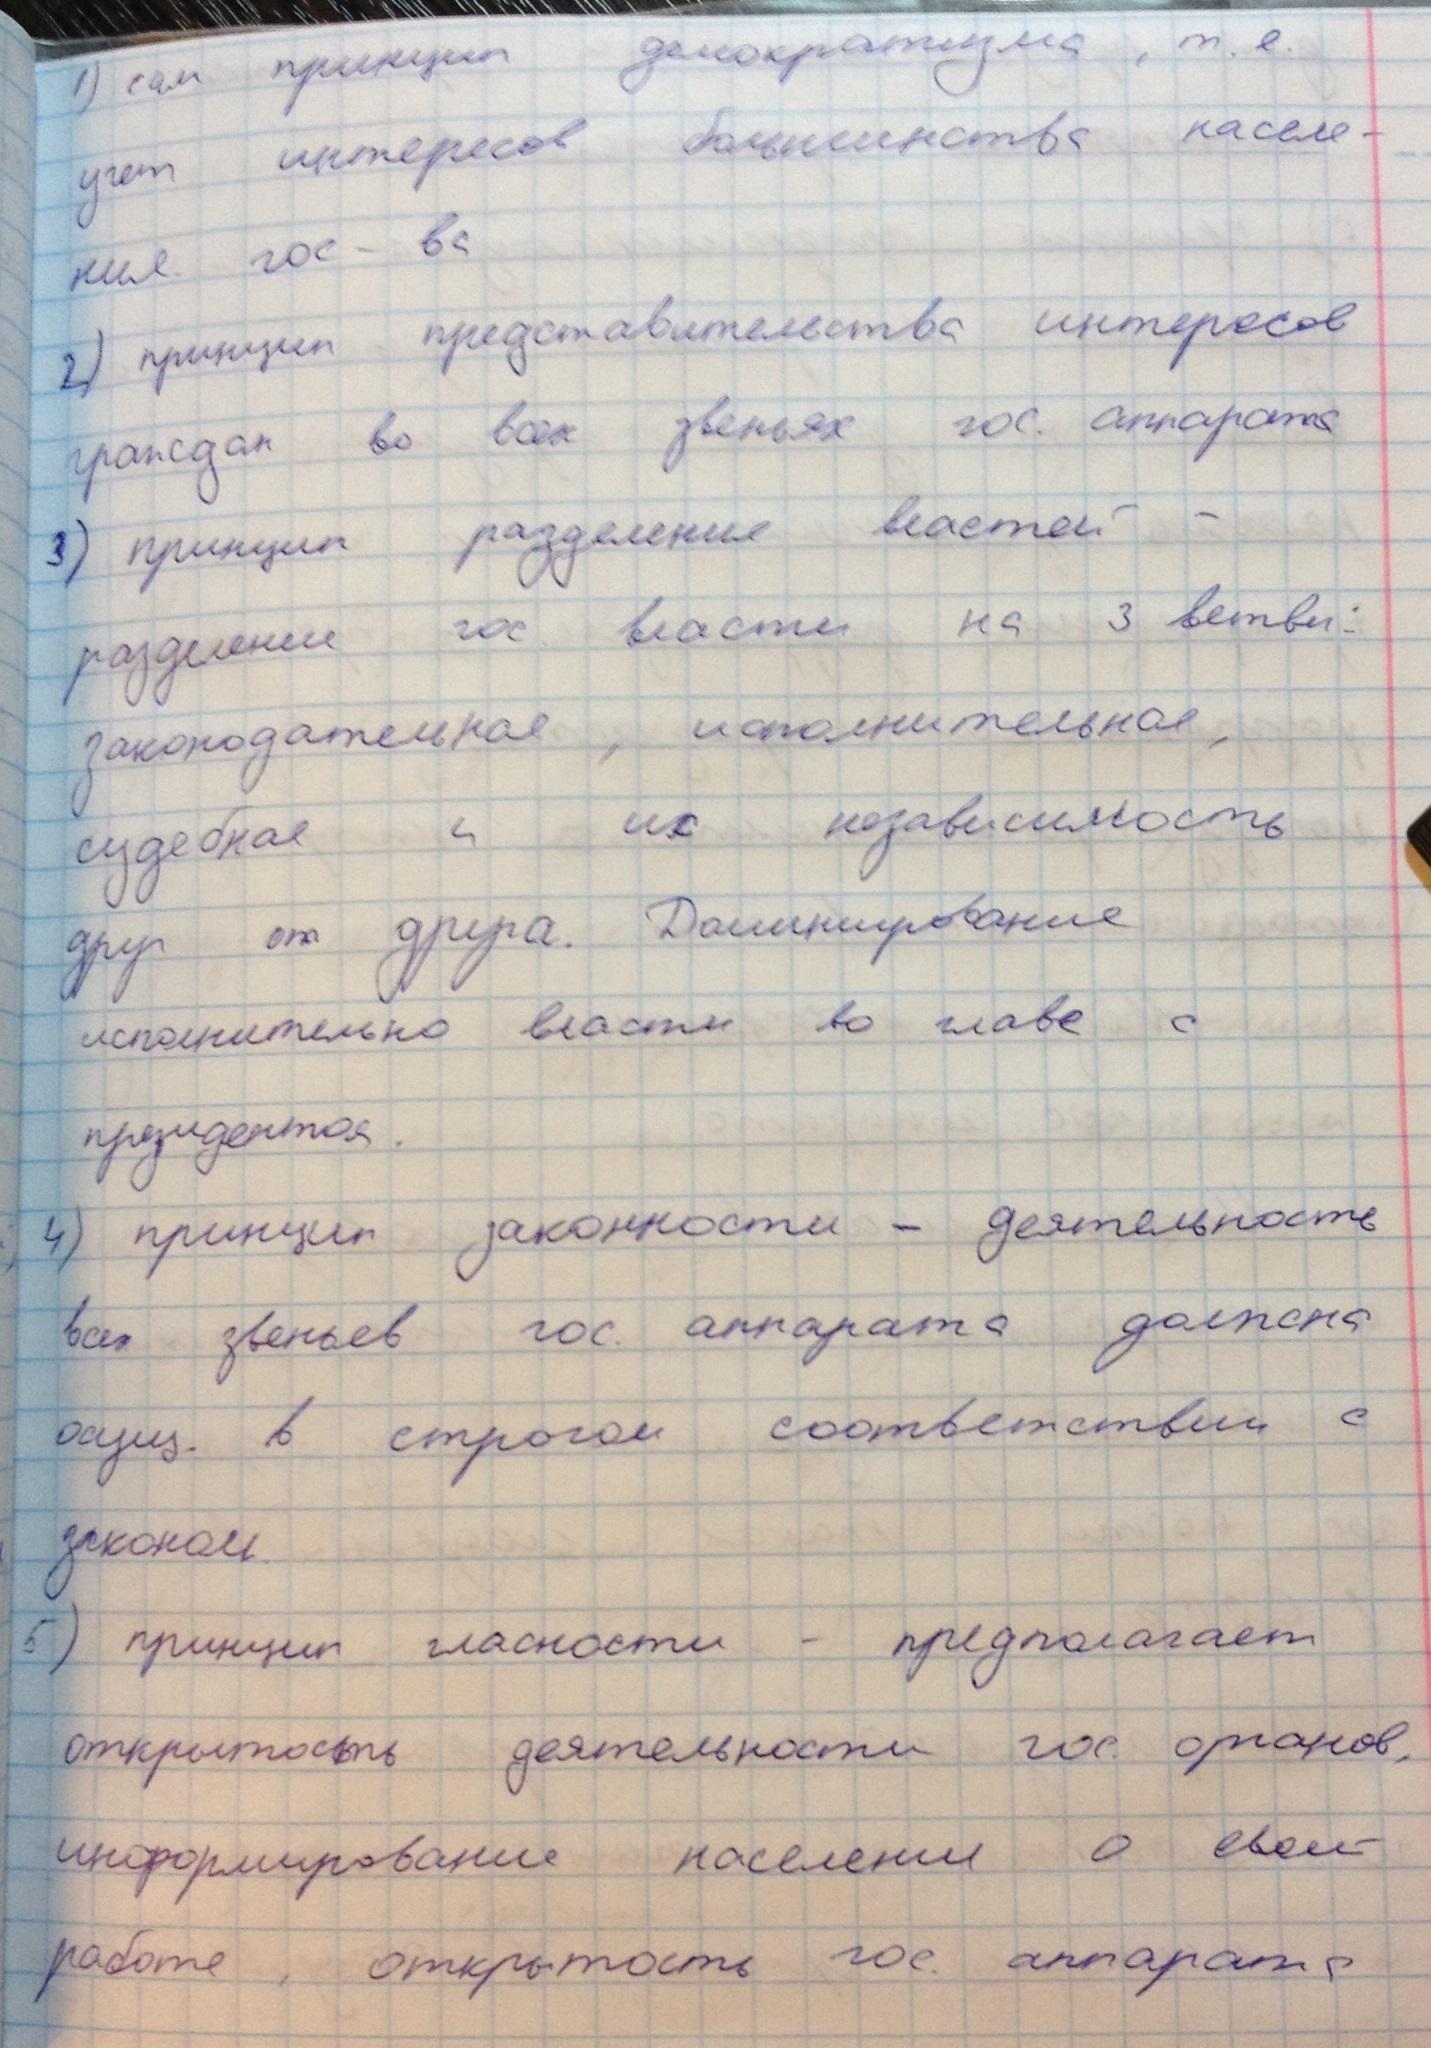 1) сам принцип демократизма, т.е.
учет интересов большинства населе-
ния гос-ва
2) принцип представительства интересов
граждан во всех звеньях гос. аппарата
3) принцип разделения властей -
разделение гос. власти на 3 ветви:
законодательная, исполнительная,
судебная и их независимость
друг от друга. Доминирование
исполнительно власти во главе с
президентоя.
4) принцип законности - деятельность
всех звеньев гос. аппарата должна
осущ. в строгом соответствии с
законом.
5) принцип гласности - предполагает
открытость деятельности гос. органов,
информирование населения о своей
работе, открытость гос. аппарата